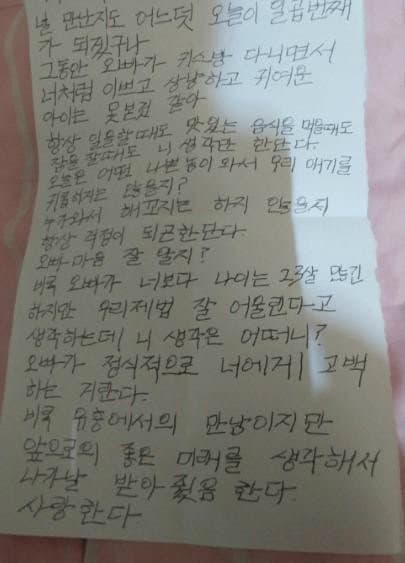 널 만난지도 어느덧 오늘이 일곱번째
가 되었구나
그동안 오빠가 키스방 다니면서
너처럼 이쁘고 상냥하고 귀여운
아이는 못본것 같아
항상 일을할때도 맛있는 음식을 먹을때도
잠을 잘때도 니 생각만 한단다.
오늘은 어떤 나쁜놈이 와서 우리 애기를
괴롭히지는 않을지?
누가와서 해꼬지는 하지 않을지
항상 걱정이 되곤한단다.
오빠 마음 잘 알지?
비록 오빠가 너보다 나이는 23살 많긴
하지만 우리제법 잘 어울린다고
생각하는데 니 생각은 어떠니?
오빠가 정식적으로 너에게 고백
하는 거란다.
비록 유흥에서의 만남이지만
앞으로의 좋은 미래를 생각해서
나가날 받아줬음 한다
사랑한다